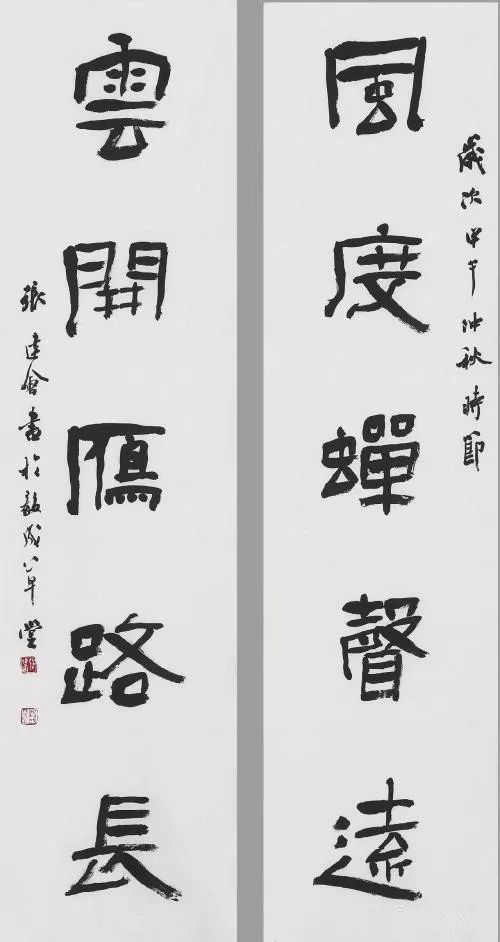 歲次甲午仲秋時節
風度蟬聲遠
雲開鴈路長
張建會書於堂